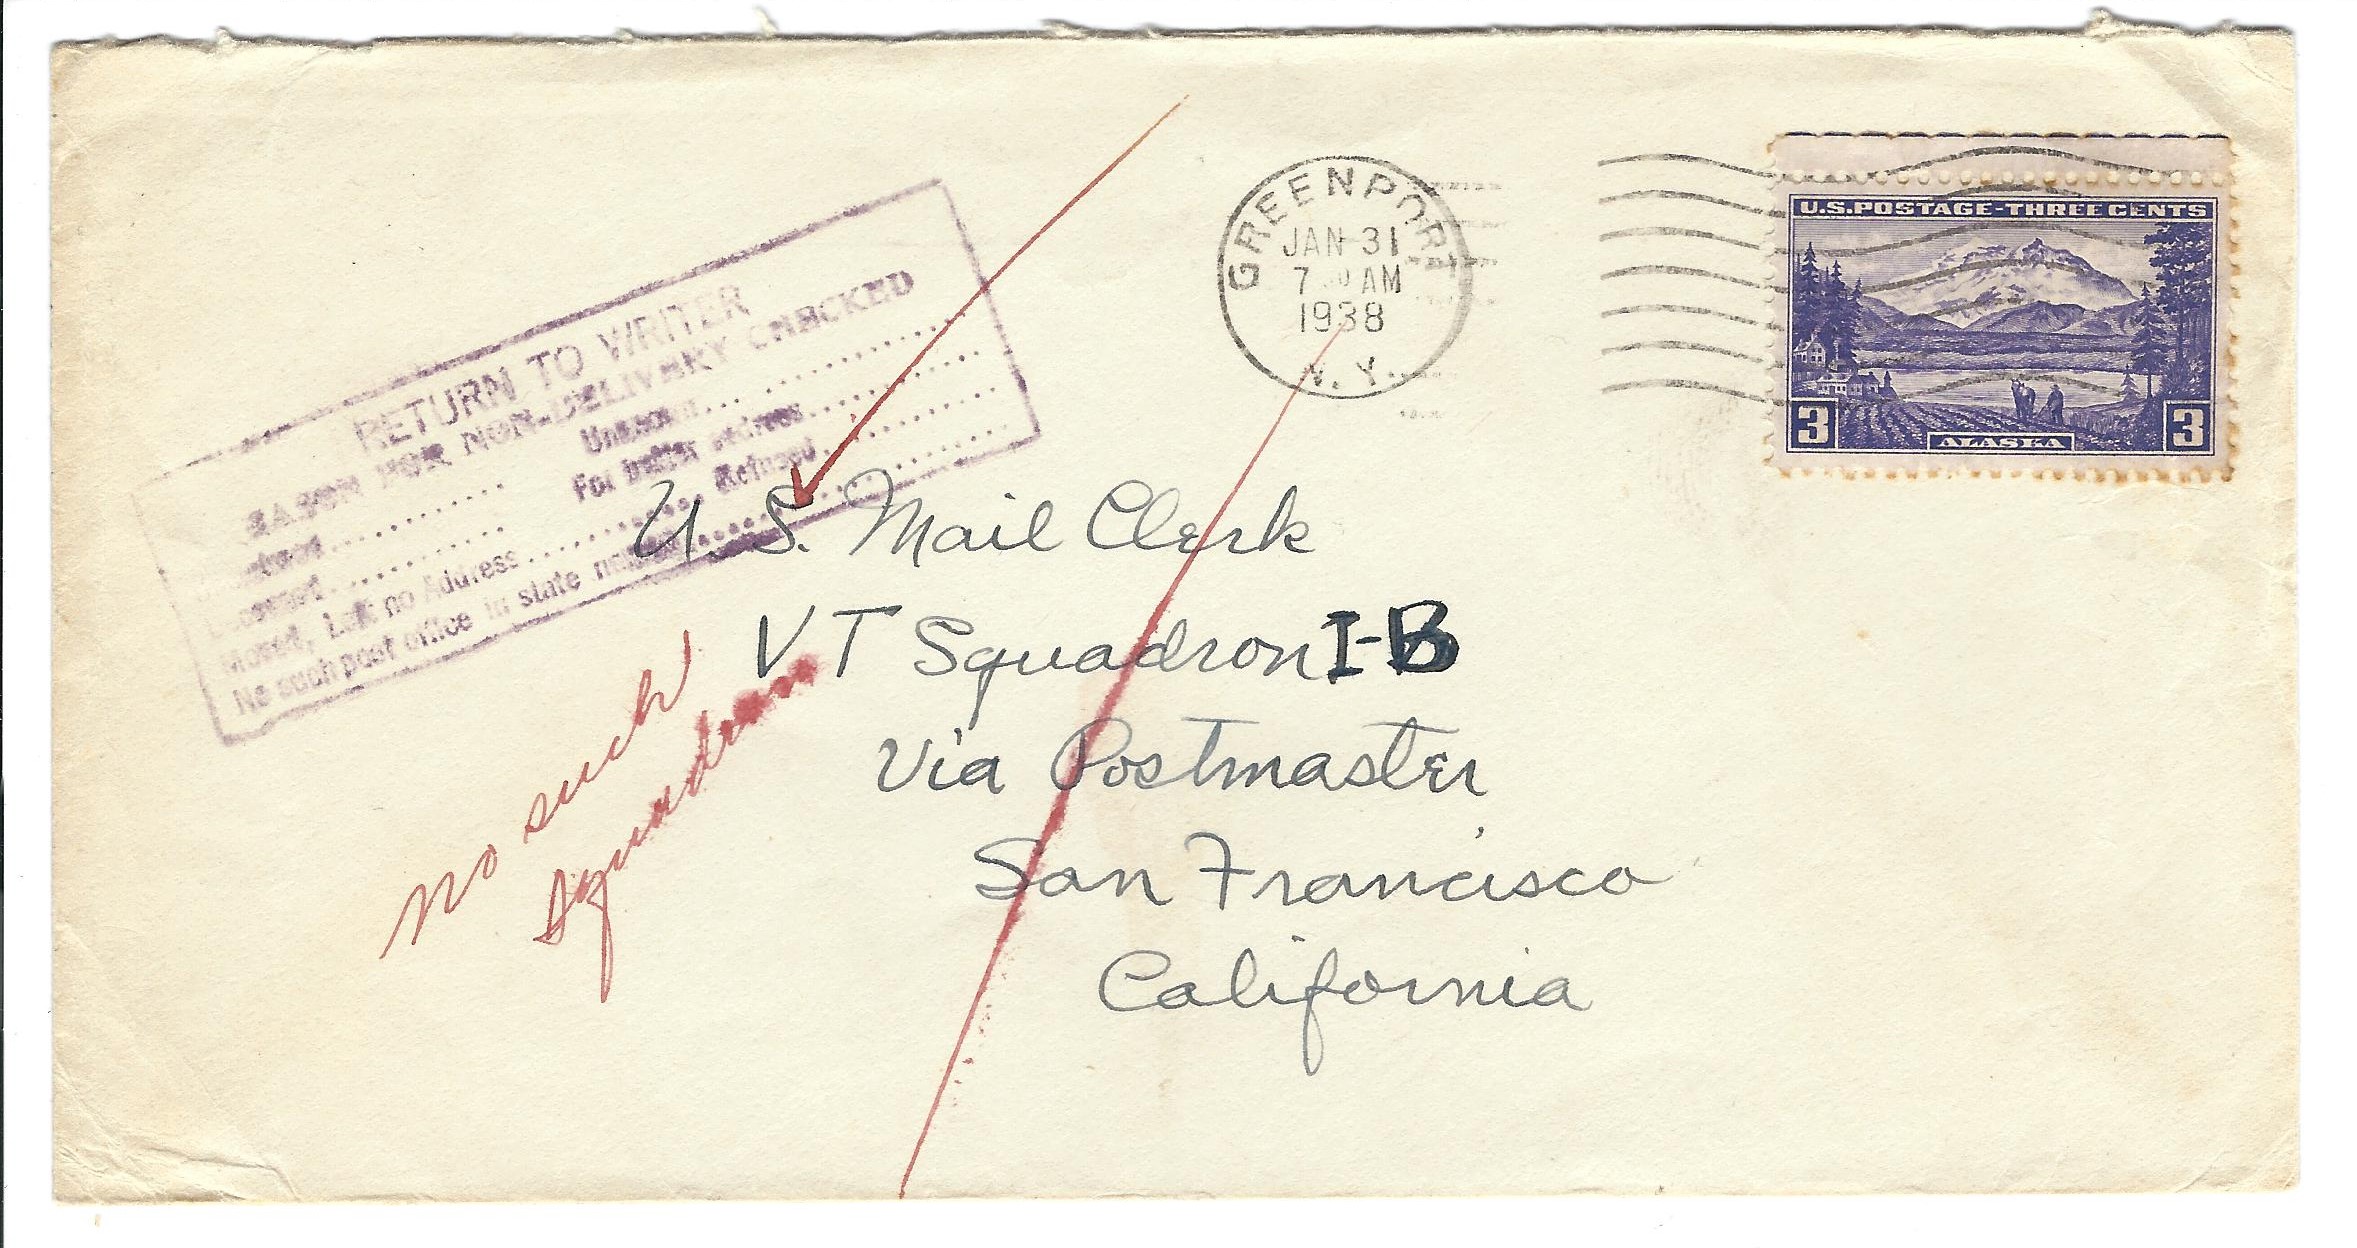 RETURN TO WRITER
NON-DELIVERY CHECKED
Unknown
For better address
Refused
Moved, Left no Address
No such post office in state
GREENPORT
JAN 31
7 AM
1938
N. Y.
U.S. POSTAGE-THREE CENTS
3 ALASKA 3
U. S. Mail Clerk
VT Squadron I-B
Via Postmaster
San Francisco
California
No such
Squadron